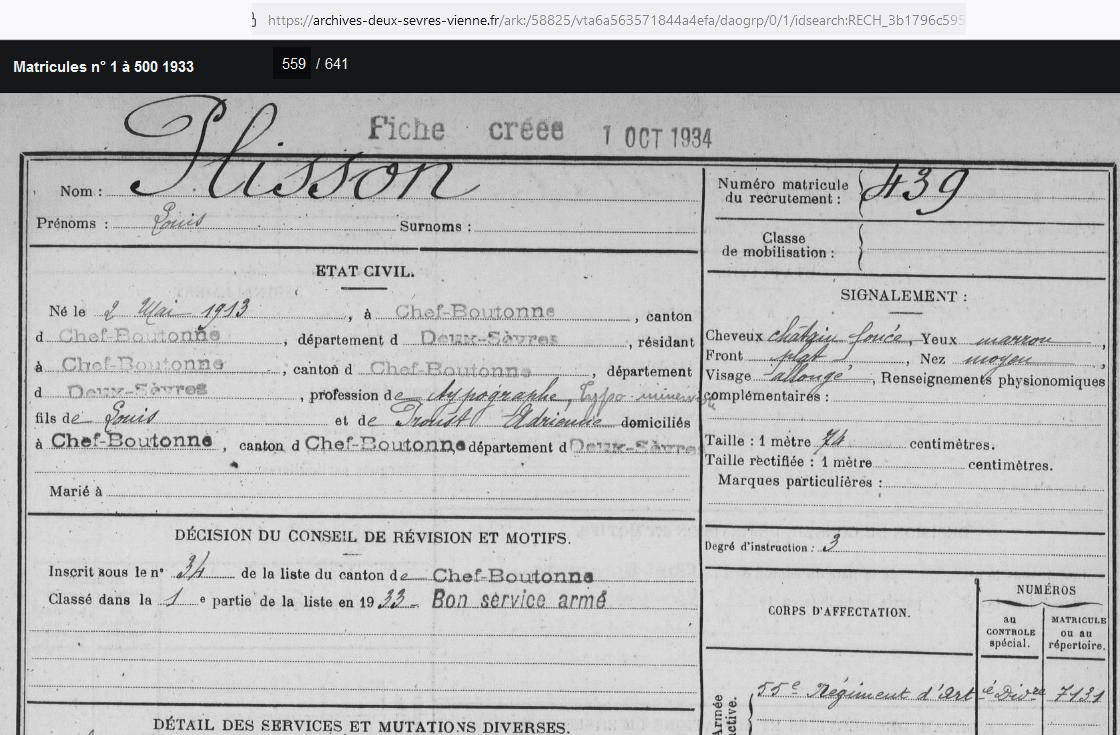 https://archives-deux-sevres-vienne.fr/ark:/58825/vta6a563571844a4efa/daogrp/0/1/idsearch:RECH_3b1796c595
Matricules n° 1 à 500 1933
559 / 641
Fiche créée 1 OCT 1934
Nom : Plisson
Prénoms : Louis Surnoms :
ETAT CIVIL.
Né le 2 Mai 1913, à Chef-Boutonne, canton
d Chef-Boutonne, département d Deux-Sèvres, résidant
à Chef-Boutonne, canton d Chef-Boutonne, département
d Deux-Sèvres, profession de typographe, typo-minerviste
fils de Louis et de Proust Adrienne domiciliés
à Chef-Boutonne, canton d Chef-Boutonne département d Deux-Sèvres
Marié à
DÉCISION DU CONSEIL DE RÉVISION ET MOTIFS.
Inscrit sous le n° 34 de la liste du canton de Chef-Boutonne
Classé dans la 1e partie de la liste en 1933 - Bon service armé
DÉTAIL DES SERVICES ET MUTATIONS DIVERSES.
Numéro matricule
du recrutement : 439
Classe
de mobilisation :
SIGNALEMENT :
Cheveux châtain foncé, Yeux marron,
Front plat, Nez moyen
Visage allongé, Renseignements physionomiques
complémentaires :
Taille : 1 mètre 74 centimètres.
Taille rectifiée : 1 mètre centimètres.
Marques particulières :
Degré d'instruction : 3
CORPS D'AFFECTATION.
NUMÉROS
au
CONTROLE
spécial.
MATRICULE
ou au
répertoire.
Armée
active.
55e Régiment d'Art ie Divre 7131